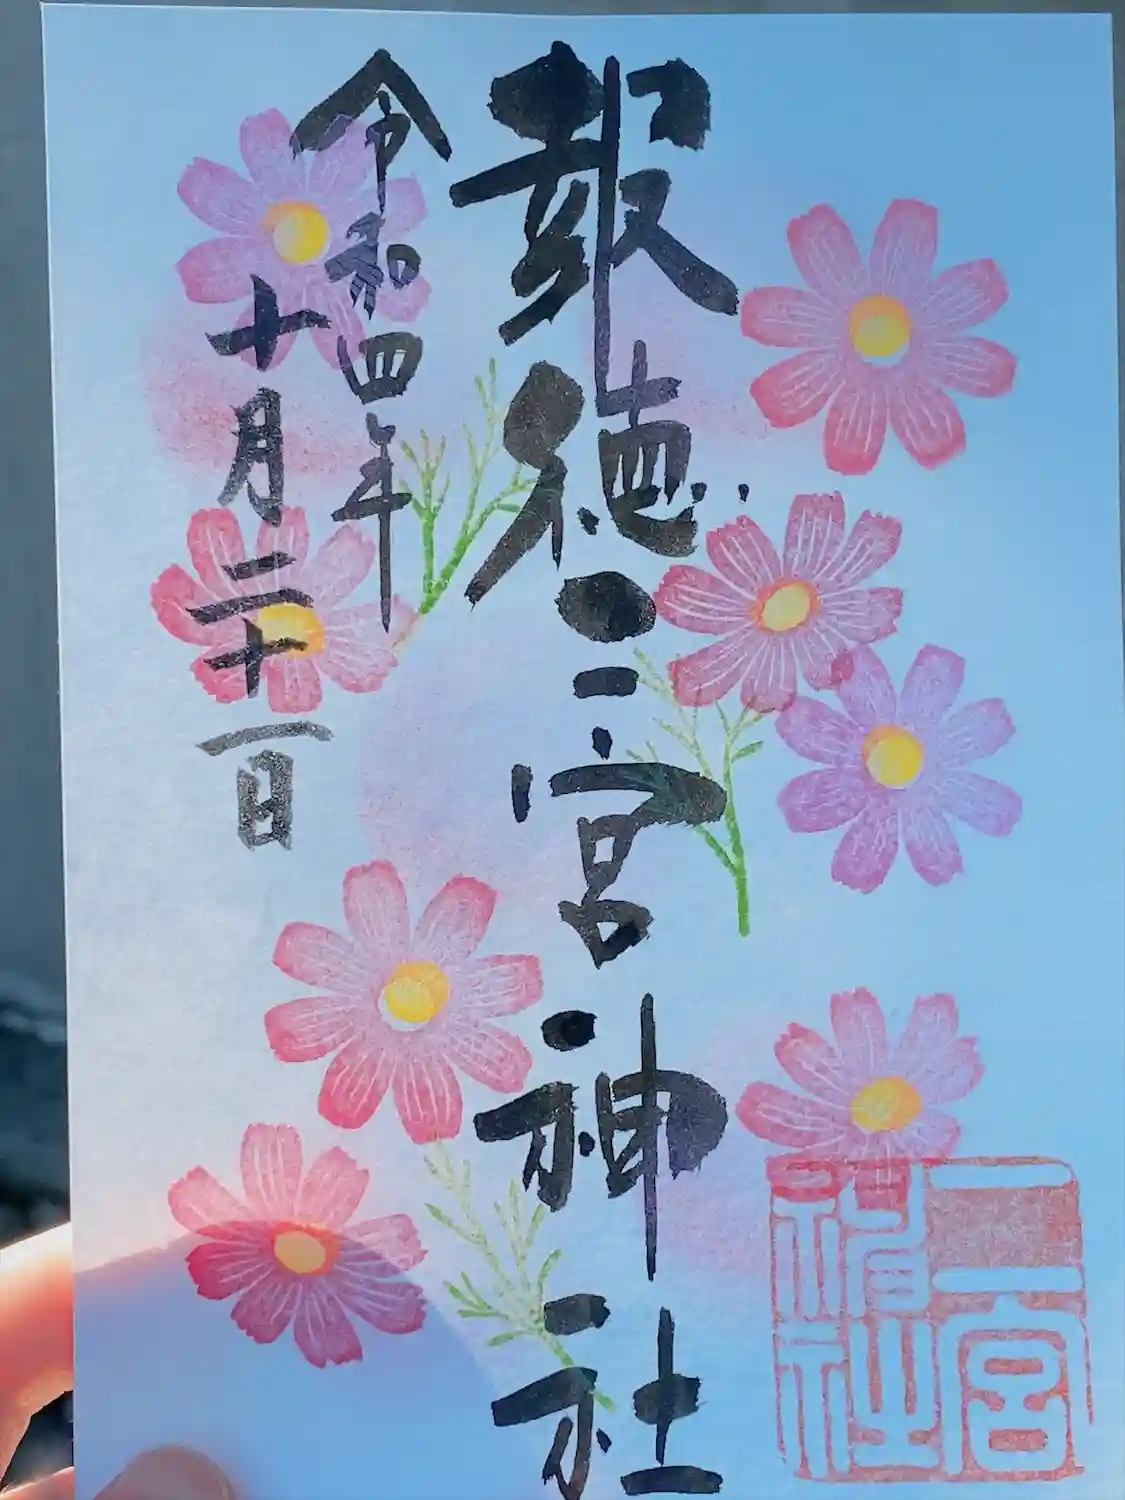 報徳二宮神社
令和四年
十月二十一日
二宮
神社